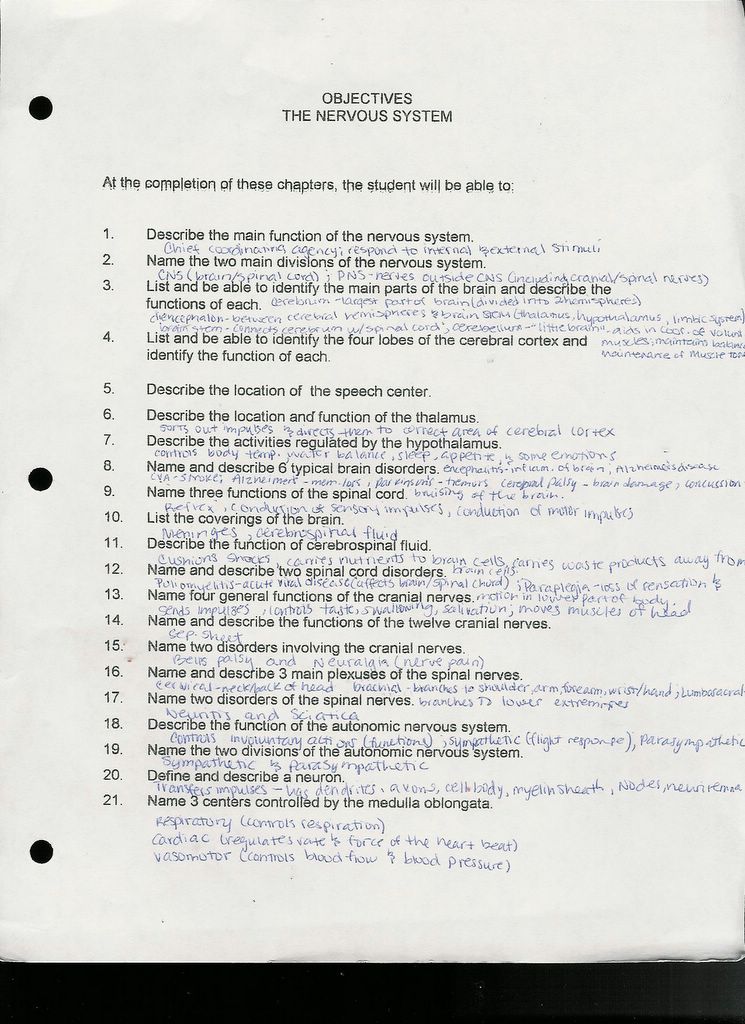 OBJECTIVES
THE NERVOUS SYSTEM
At the completion of these chapters, the student will be able to:
1. Describe the main function of the nervous system.
Chief coordinating agency; respond to internal & external stimuli
2. Name the two main divisions of the nervous system.
CNS (brain/spinal cord); PNS - nerves outside CNS (including cranial/spinal nerves)
3. List and be able to identify the main parts of the brain and describe the
functions of each. cerebrum - largest part of brain (divided into 2 hemispheres)
diencephalon - between cerebral hemispheres & brain stem (thalamus, hypothalamus, limbic system)
brain stem - connects cerebrum w/ spinal cord; cerebellum - "little brain" - aids in coor. of volunt
4. List and be able to identify the four lobes of the cerebral cortex and muscles; maintains balance
identify the function of each. maintenance of muscle tone
5. Describe the location of the speech center.
6. Describe the location and function of the thalamus.
sorts out impulses & directs them to correct area of cerebral cortex
7. Describe the activities regulated by the hypothalamus.
controls body temp, water balance, sleep, appetite, & some emotions
8. Name and describe 6 typical brain disorders. encephalitis - inflam. of brain; Alzheimers disease
CVA - stroke; Alzheimers - mem. loss, Parkinsons - tremors cerebral palsy - brain damage; concussion
9. Name three functions of the spinal cord. bruising of the brain.
Reflex, conduction of sensory impulses, conduction of motor impulses
10. List the coverings of the brain.
Meninges, cerebrospinal fluid
11. Describe the function of cerebrospinal fluid.
Cushions shocks, carries nutrients to brain cells, carries waste products away from
12. Name and describe two spinal cord disorders. brain cells.
Poliomyelitis - acute viral disease (affects brain/spinal chord); Paraplegia - loss of sensation &
13. Name four general functions of the cranial nerves. motion in lower part of body.
Sends impulses, controls taste, swallowing, salivation; moves muscles of head
14. Name and describe the functions of the twelve cranial nerves.
sep. sheet
15. Name two disorders involving the cranial nerves.
Bells palsy and Neuralgia (nerve pain)
16. Name and describe 3 main plexuses of the spinal nerves.
cervical - neck/back of head brachial - branches to shoulder, arm, forearm, wrist/hand; Lumbosacral -
17. Name two disorders of the spinal nerves. branches to lower extremities
Neuritis and Sciatica
18. Describe the function of the autonomic nervous system.
Controls involuntary actions (functions); sympathetic (flight response), Parasympathetic
19. Name the two divisions of the autonomic nervous system.
Sympathetic & Parasympathetic
20. Define and describe a neuron.
Transfers impulses - has dendrites, axons, cell body, myelin sheath, Nodes, neurilemma
21. Name 3 centers controlled by the medulla oblongata.
Respiratory (controls respiration)
Cardiac (regulates rate & force of the heart beat)
Vasomotor (controls blood flow & blood pressure)